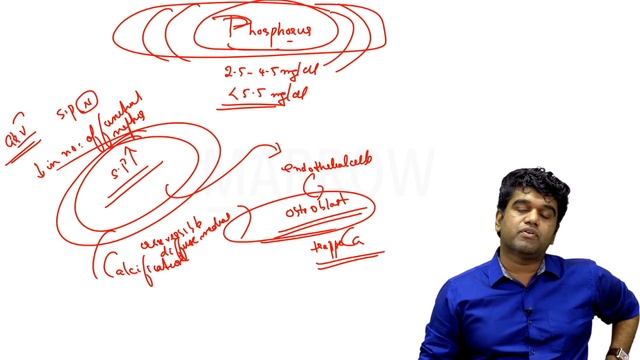 Phosphorus
2.5 - 4.5 mg/dl
< 5.5 mg/dl
S.P (N)
↓ in no: of functional
S.P ↑
endothelial cells
Osteoblast
trapp Ca
irreversible
diffuse medial
Calcification
MARROW